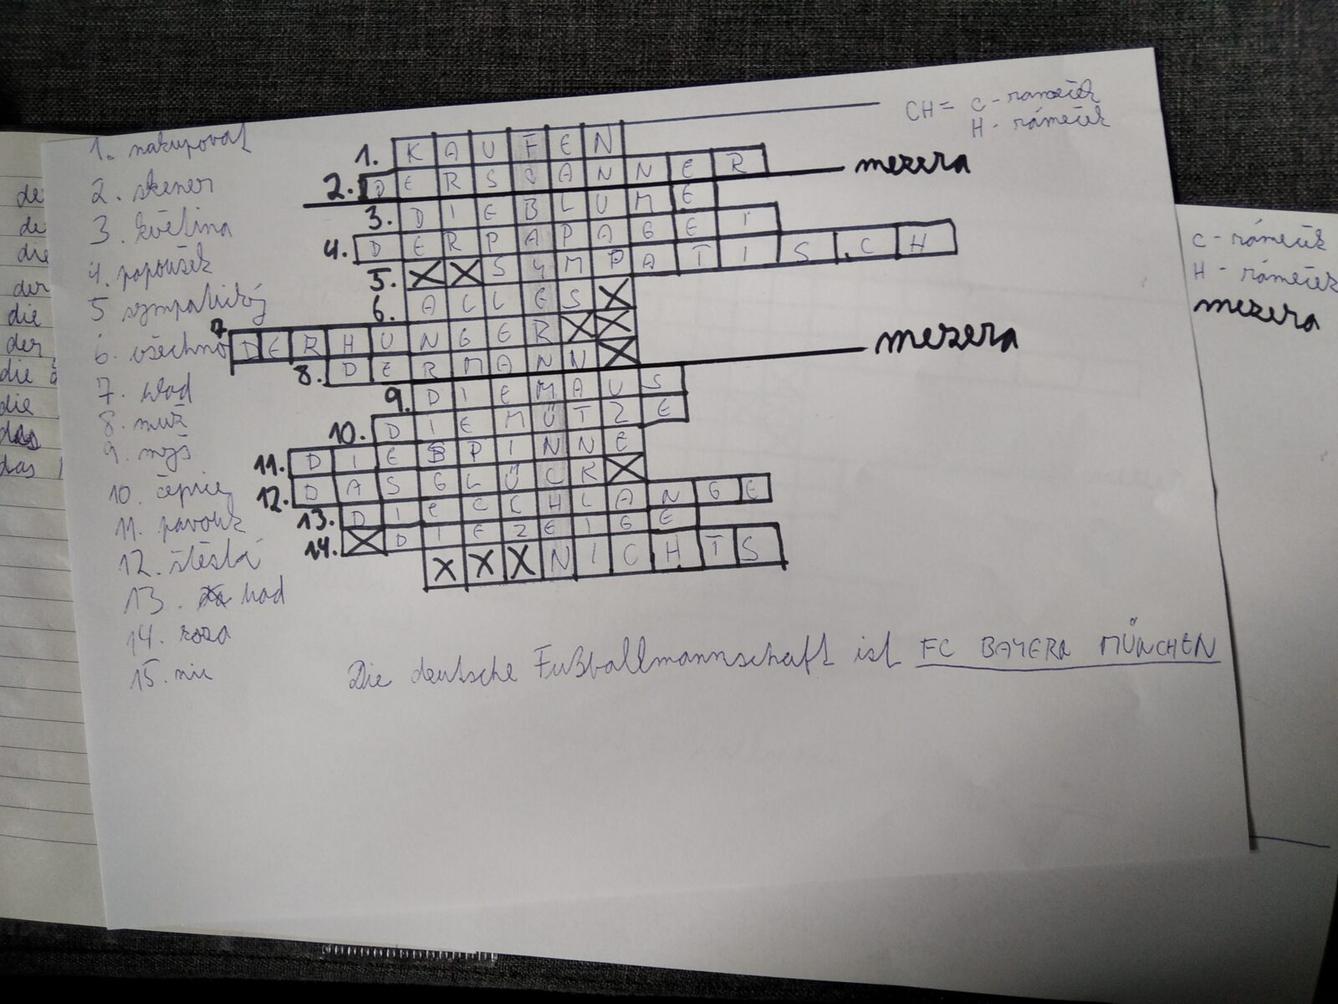 CH = C - rámeček
H - rámeček
1. nakupovat
2. skener
3. květina
4. papoušek
5 sympatický
6. všechno
7. hlad
8. muž
9. myš
10. čepice
11. pavouk
12. štěstí
13. had
14. koza
15. nic
1. KAUFEN
2. DERSCANNER
mezera
3. DIEBLUME
4. DERPAPAGEI
5. XXSYMPATISCH
6. ALLESX
7 DERHUNGERXX
8. DERMANNX
mezera
9. DIEMAUS
10. DIEMÜTZE
11. DIESPINNE
12. DASGLÜCKX
13. DIE CCHLANGE
14. XDIEZEIGE
XXXNICHTS
Die deutsche Fußballmannschaft ist FC BAYERN MÜNCHEN
C - rámeček
H - rámeček
mezera
de
de
die
der
die
der
die
die
das
das